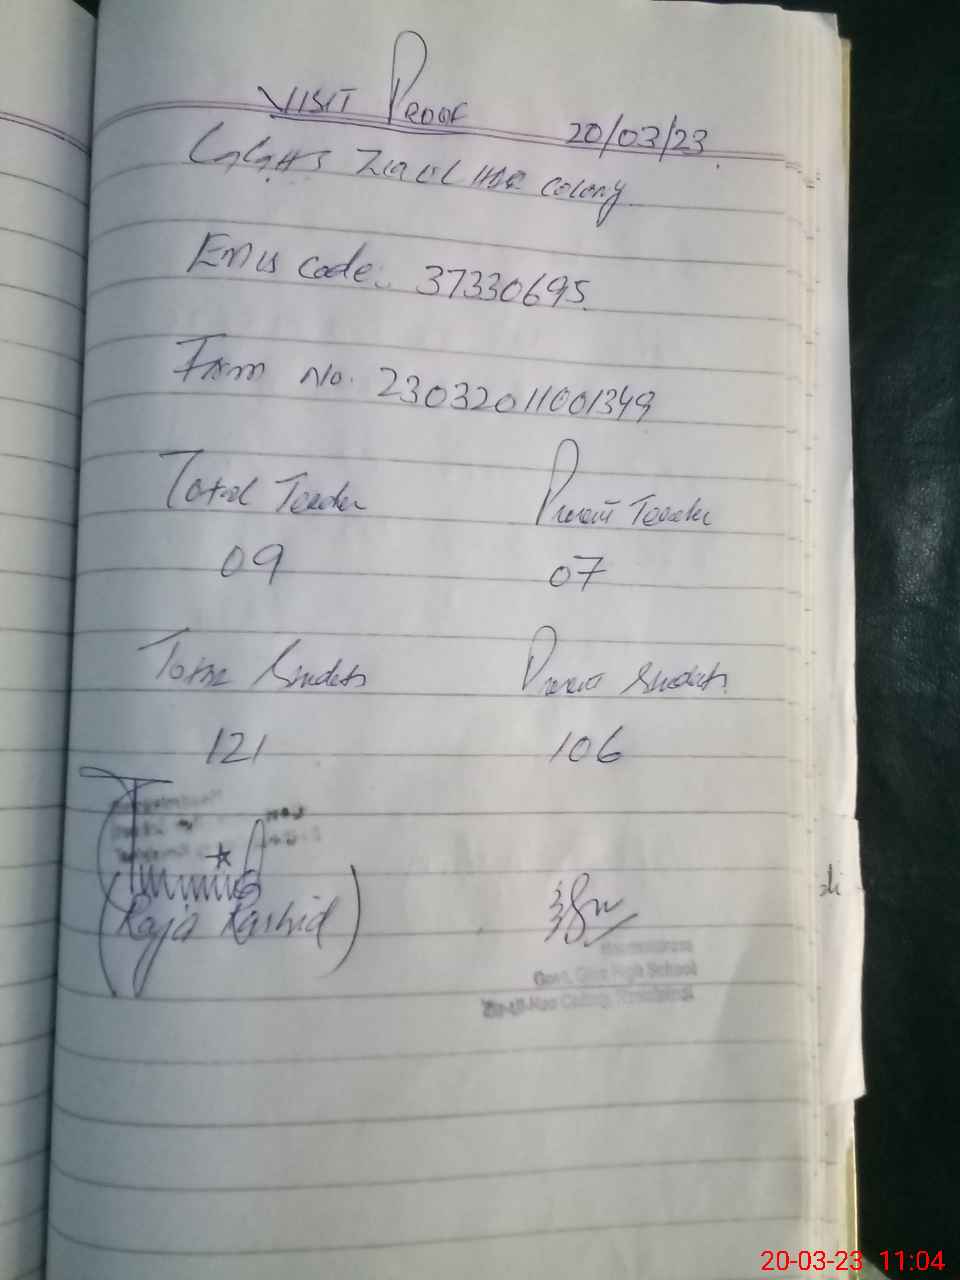 VISIT PROOF 20/03/23
GGHS Zia ul Haq colony
Emis Code: 37330695
Form No. 23032011001349
Total Teacher Present Teacher
09 07
Total Students Present Students
121 106
(Raja Rashid)
Headmistress
Govt. Girls High School
Zia-Ul-Haq Colony, Rawalpindi
20-03-23 11:04